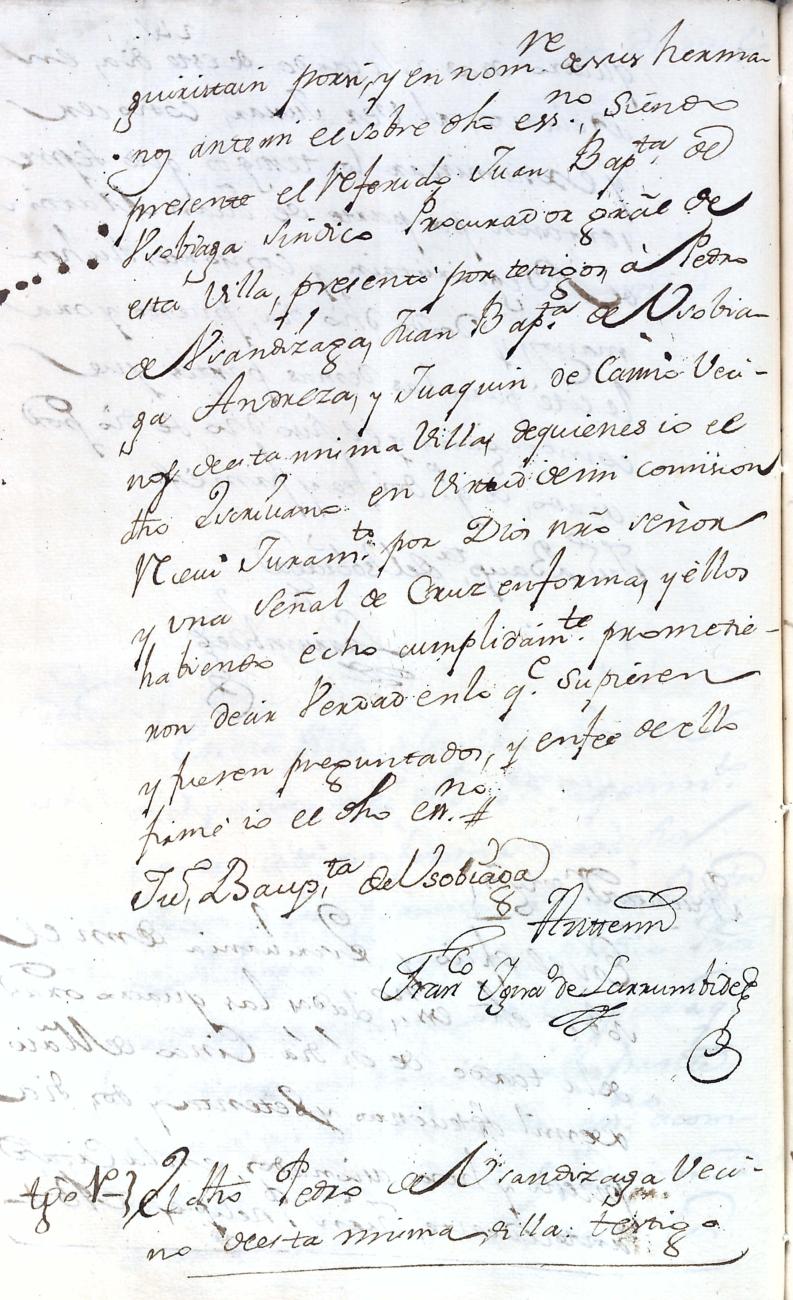 guiristain porsi, y en nom.re desus herma-
nos antemi el sobre dho ess.no, siendo
presente el referido Juan Bap.ta de
Usobiaga sindico Procurador gral de
esta Villa, presentó por testigos, á Pedro
de Usandizaga, Juan Bap.ta de Usobia-
ga Andreza, y Juaquin de Camio Veci-
nos deesta misma Villa, dequienes io el
dho Escrivano en virtud demi comision
Recivi Juram.to por Dios nro señor
y una señal de Cruz enforma, y ellos
habiendo echo cumplidam.te prometie-
ron decir Verdad enlo q.e supieren
y fueren preguntados, y enfee deello
firmé io el dho ess.no #
Juº, Baup.ta de Usobiaga
Antemi
Fran.co Ignaº de Larrumbide
tgo 1º } El dho Pedro de Usandizaga Veci-
no deesta misma villa testigo